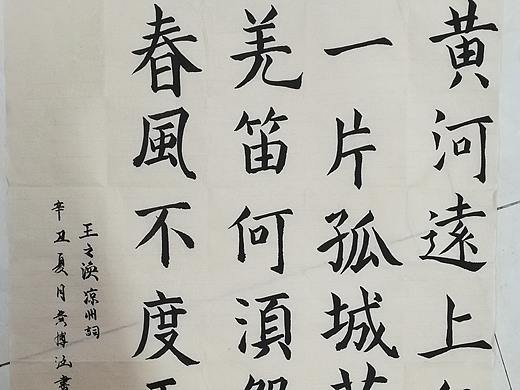 黄河遠上
一片孤城
羌笛何湏
春風不度
王之渙凉州詞
辛丑夏月黄博涵書